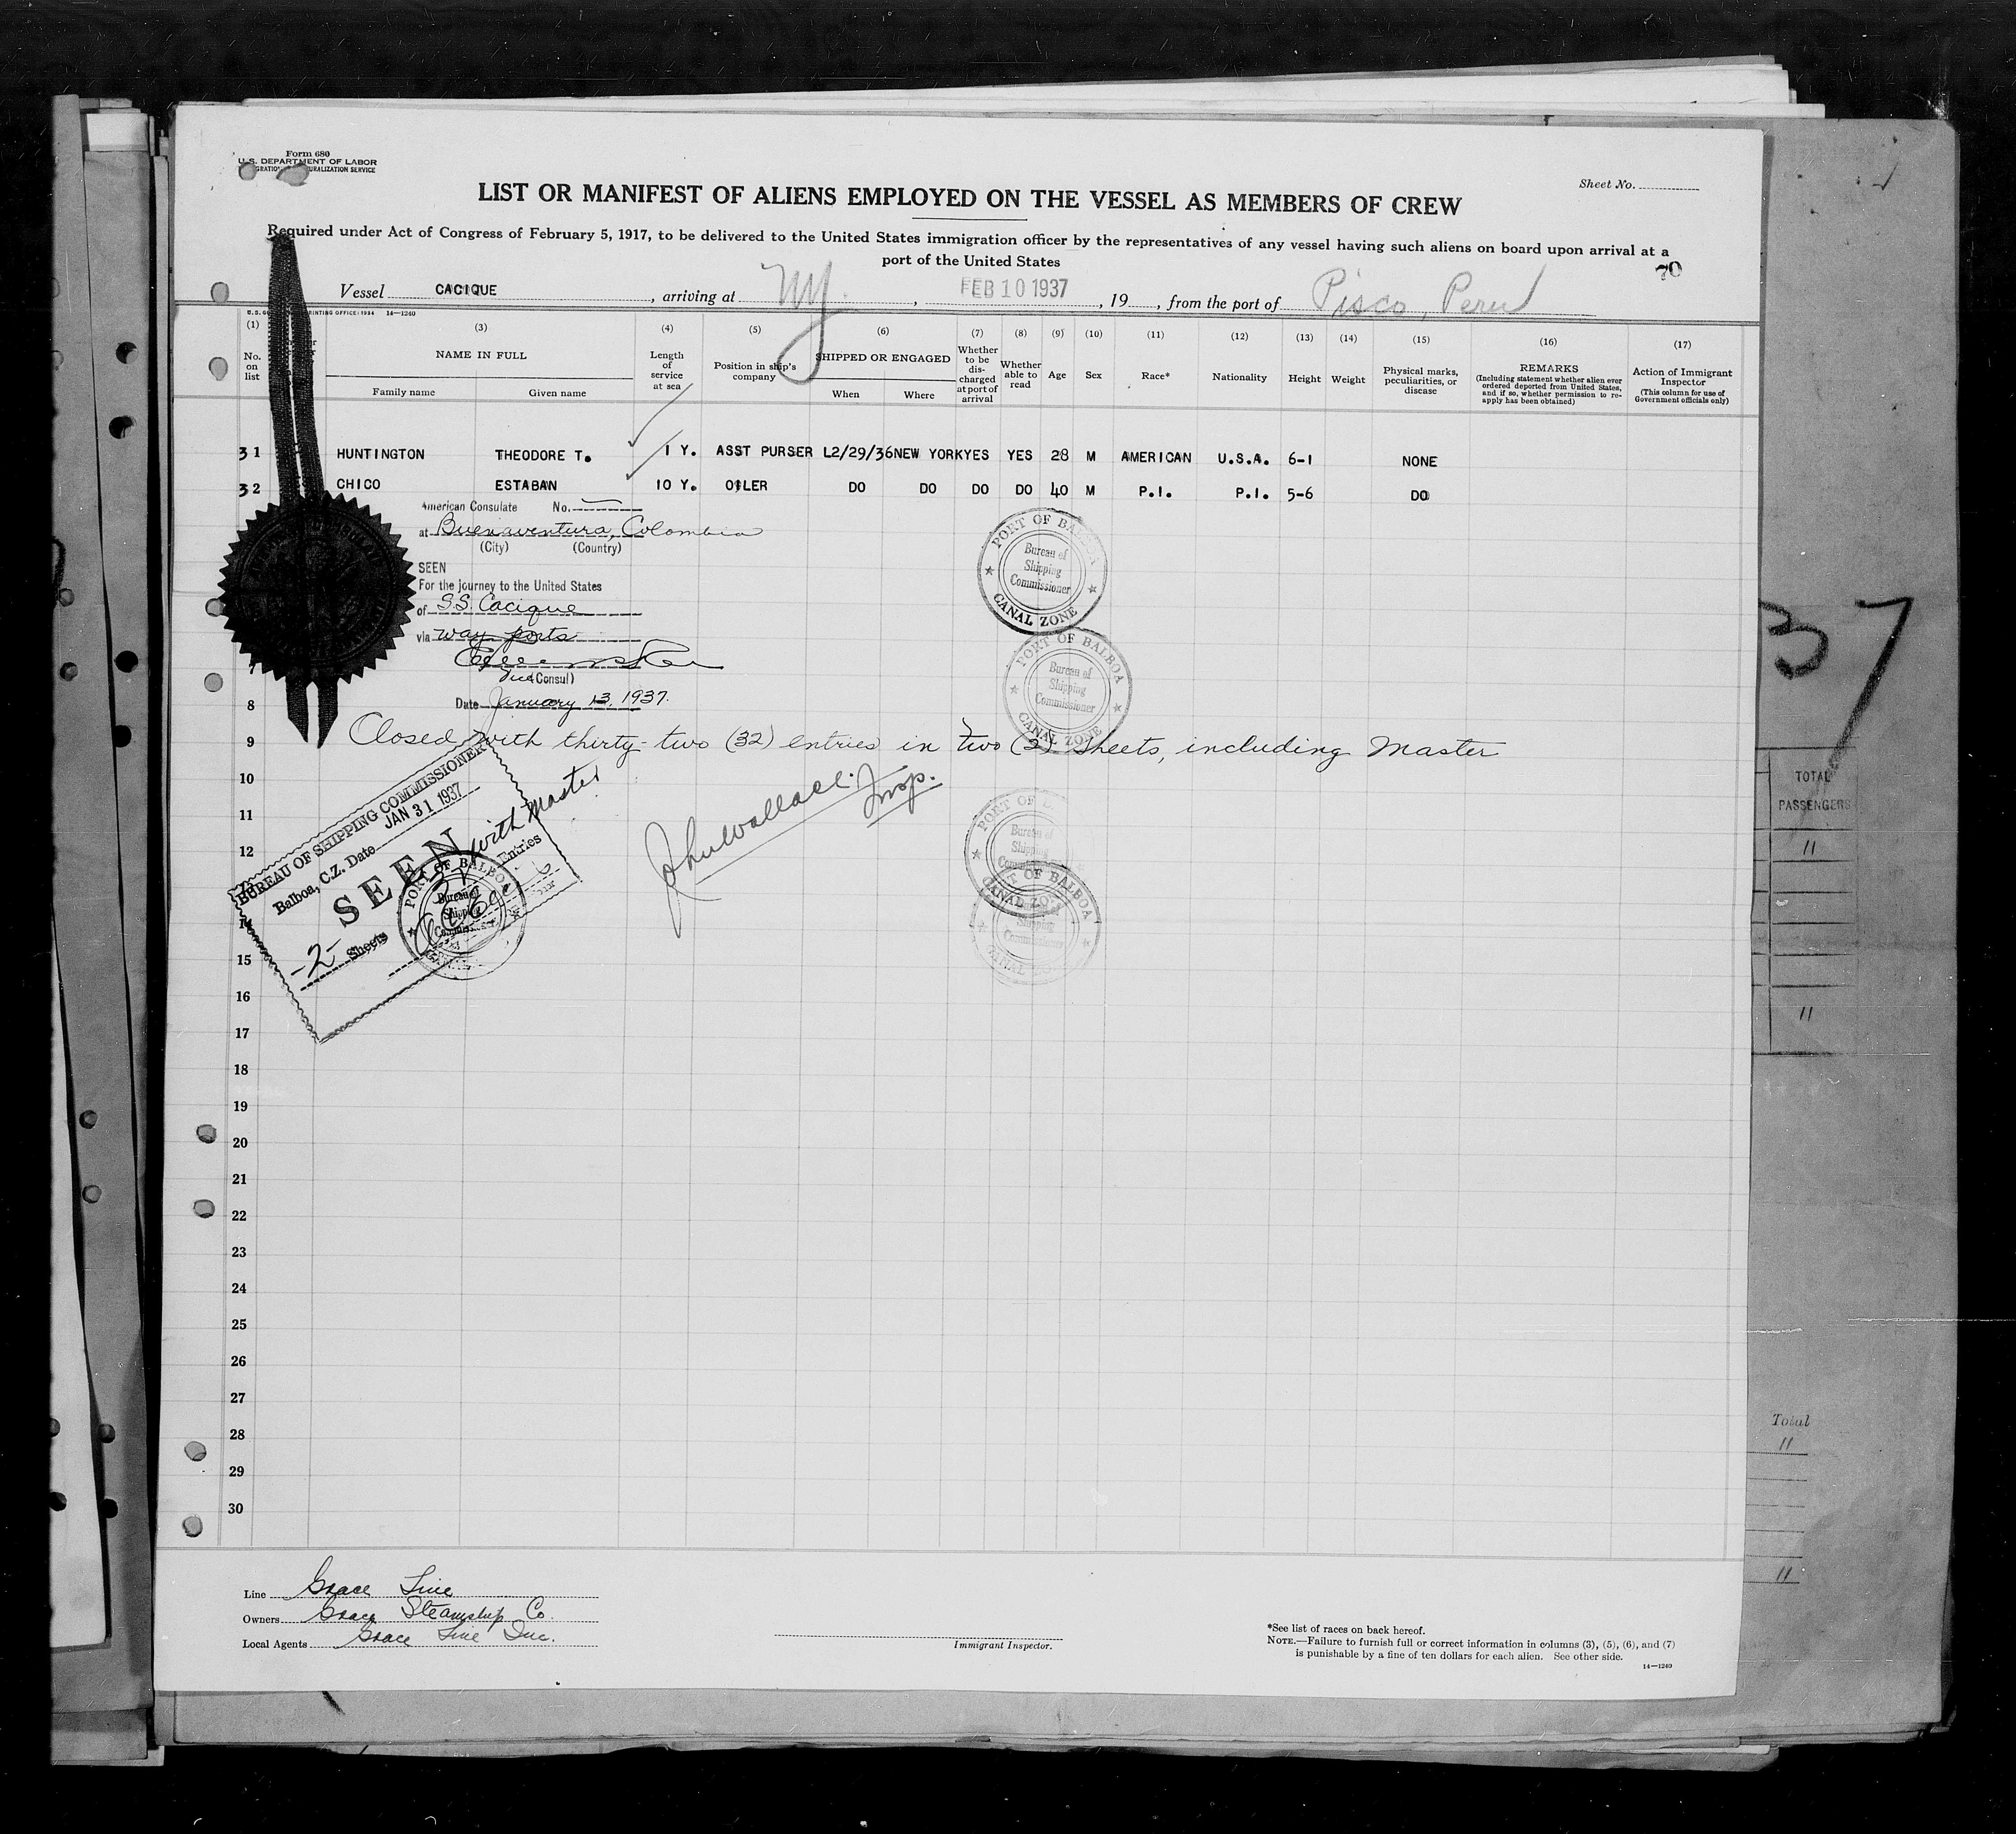 Form 680
U.S. DEPARTMENT OF LABOR
Sheet No.
LIST OR MANIFEST OF ALIENS EMPLOYED ON THE VESSEL AS MEMBERS OF CREW
Required under Act of Congress of February 5, 1917, to be delivered to the United States immigration officer by the representatives of any vessel having such aliens on board upon arrival at a
port of the United States
70
Vessel CACIQUE, arriving at NY., FEB 10 1937, 19, from the port of Pisco, Peru
PRINTING OFFICE: 1934 14—1240
(1) (3) (4) (5) (6) (7) (8) (9) (10) (11) (12) (13) (14) (15) (16) (17)
No. on list
NAME IN FULL
Family name Given name
Length of service at sea
Position in ship's company
SHIPPED OR ENGAGED
When Where
Whether to be discharged at port of arrival
Whether able to read
Age
Sex
Race*
Nationality
Height
Weight
Physical marks, peculiarities, or disease
REMARKS
(Including statement whether alien ever ordered deported from United States, and if so, whether permission to re-apply has been obtained)
Action of Immigrant Inspector
(This column for use of Government officials only)
31 HUNTINGTON THEODORE T. 1 Y. ASST PURSER L2/29/36 NEW YORK YES YES 28 M AMERICAN U.S.A. 6-1 NONE
32 CHICO ESTABAN 10 Y. OILER DO DO DO DO 40 M P.I. P.I. 5-6 DO
American Consulate No.
at Buenaventura, Colombia
(City) (Country)
SEEN
For the journey to the United States
of S.S. Cacique
via way ports
Vice Consul)
Date January 13, 1937.
PORT OF BALBOA
Bureau of
Shipping
Commissioner
CANAL ZONE
PORT OF BALBOA
Bureau of
Shipping
Commissioner
CANAL ZONE
8
9
Closed with thirty-two (32) entries in two (2) sheets, including Master
10
11
12
BUREAU OF SHIPPING COMMISSIONER
Balboa, C.Z. Date JAN 31 1937
SEEN
with Master
Entries
-2- Sheets
PORT OF BALBOA
Bureau of
Shipping
John Wallace. Insp.
Bureau of
Shipping
PORT OF BALBOA
CANAL
Shipping
Commissioner
15
16
17
18
19
20
21
22
23
24
25
26
27
28
29
30
Line Grace Line
Owners Grace Steamship Co.
Local Agents Grace Line Inc.
Immigrant Inspector.
*See list of races on back hereof.
NOTE.—Failure to furnish full or correct information in columns (3), (5), (6), and (7)
is punishable by a fine of ten dollars for each alien. See other side.
14—1240
37
TOTAL
PASSENGERS
11
11
Total
11
11